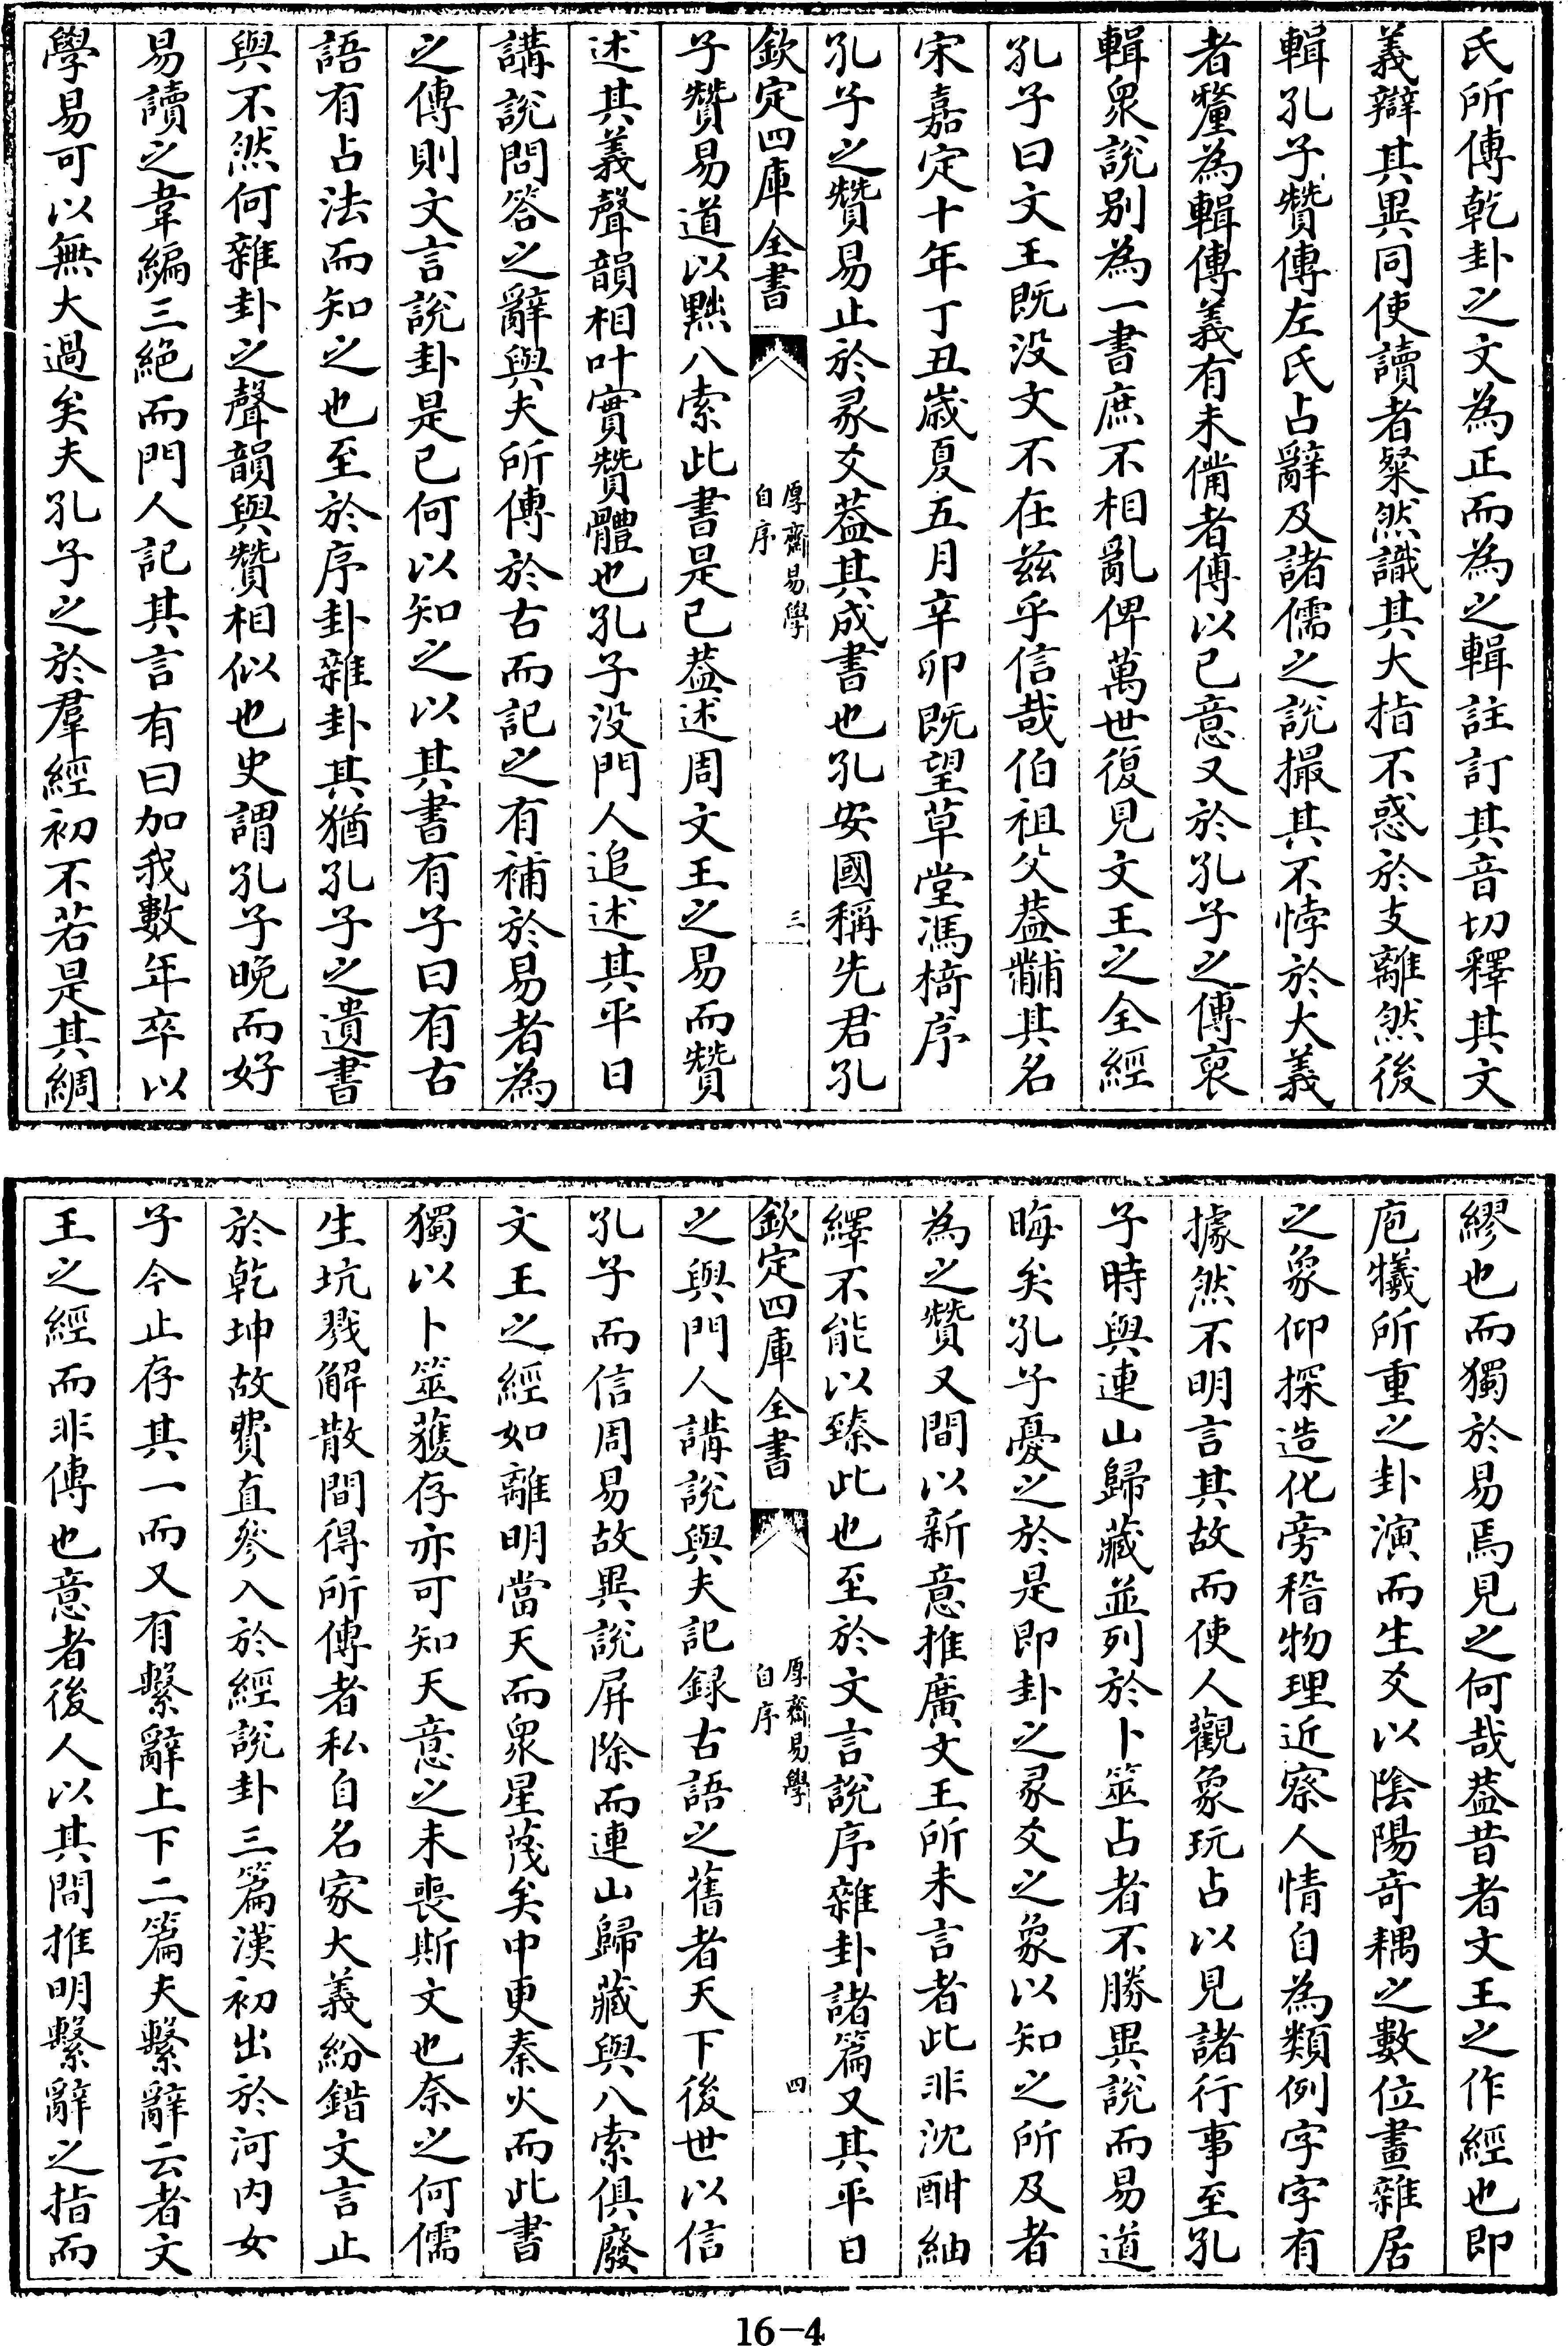 氏所傳乾卦之文為正而為之輯註訂其音切釋其文
義辯其異同使讀者粲然識其大指不惑於支離然後
輯孔子贊傳左氏占辭及諸儒之說撮其不悖於大義
者釐為輯傳義有未備者傅以已意又於孔子之傳裒
輯衆說别為一書庶不相亂俾萬世復見文王之全經
孔子曰文王既没文不在兹乎信哉伯祖父葢黼其名
宋嘉定十年丁丑歲夏五月辛卯既望草堂馮椅序
孔子之贊易止於彖爻葢其成書也孔安國稱先君孔
欽定四庫全書
厚齋易學
自序
三
子贊易道以黜八索此書是已葢述周文王之易而贊
述其義聲韻相叶實贊體也孔子没門人追述其平日
講說問答之辭與夫所傳於古而記之有補於易者為
之傳則文言說卦是已何以知之以其書有子曰有古
語有占法而知之也至於序卦雜卦其猶孔子之遺書
與不然何雜卦之聲韻與贊相似也史謂孔子晚而好
易讀之韋編三絶而門人記其言有曰加我數年卒以
學易可以無大過矣夫孔子之於羣經初不若是其綢
繆也而獨於易焉見之何哉葢昔者文王之作經也即
庖犧所重之卦演而生爻以陰陽竒耦之數位畫雜居
之象仰探造化旁稽物理近察人情自為類例字字有
據然不明言其故而使人觀象玩占以見諸行事至孔
子時與連山歸藏並列於卜筮占者不勝異說而易道
晦矣孔子憂之於是即卦之彖爻之象以知之所及者
為之贊又間以新意推廣文王所未言者此非沈酣紬
繹不能以臻此也至於文言說序雜卦諸篇又其平日
欽定四庫全書
厚齋易學
自序
四
之與門人講說與夫記録古語之舊者天下後世以信
孔子而信周易故異說屏除而連山歸藏與八索俱廢
文王之經如離明當天而衆星蔑矣中更秦火而此書
獨以卜筮獲存亦可知天意之未喪斯文也奈之何儒
生坑戮解散間得所傳者私自名家大義紛錯文言止
於乾坤故費直參入於經說卦三篇漢初出於河内女
子今止存其一而又有繫辭上下二篇夫繫辭云者文
王之經而非傳也意者後人以其間推明繫辭之指而
16-4